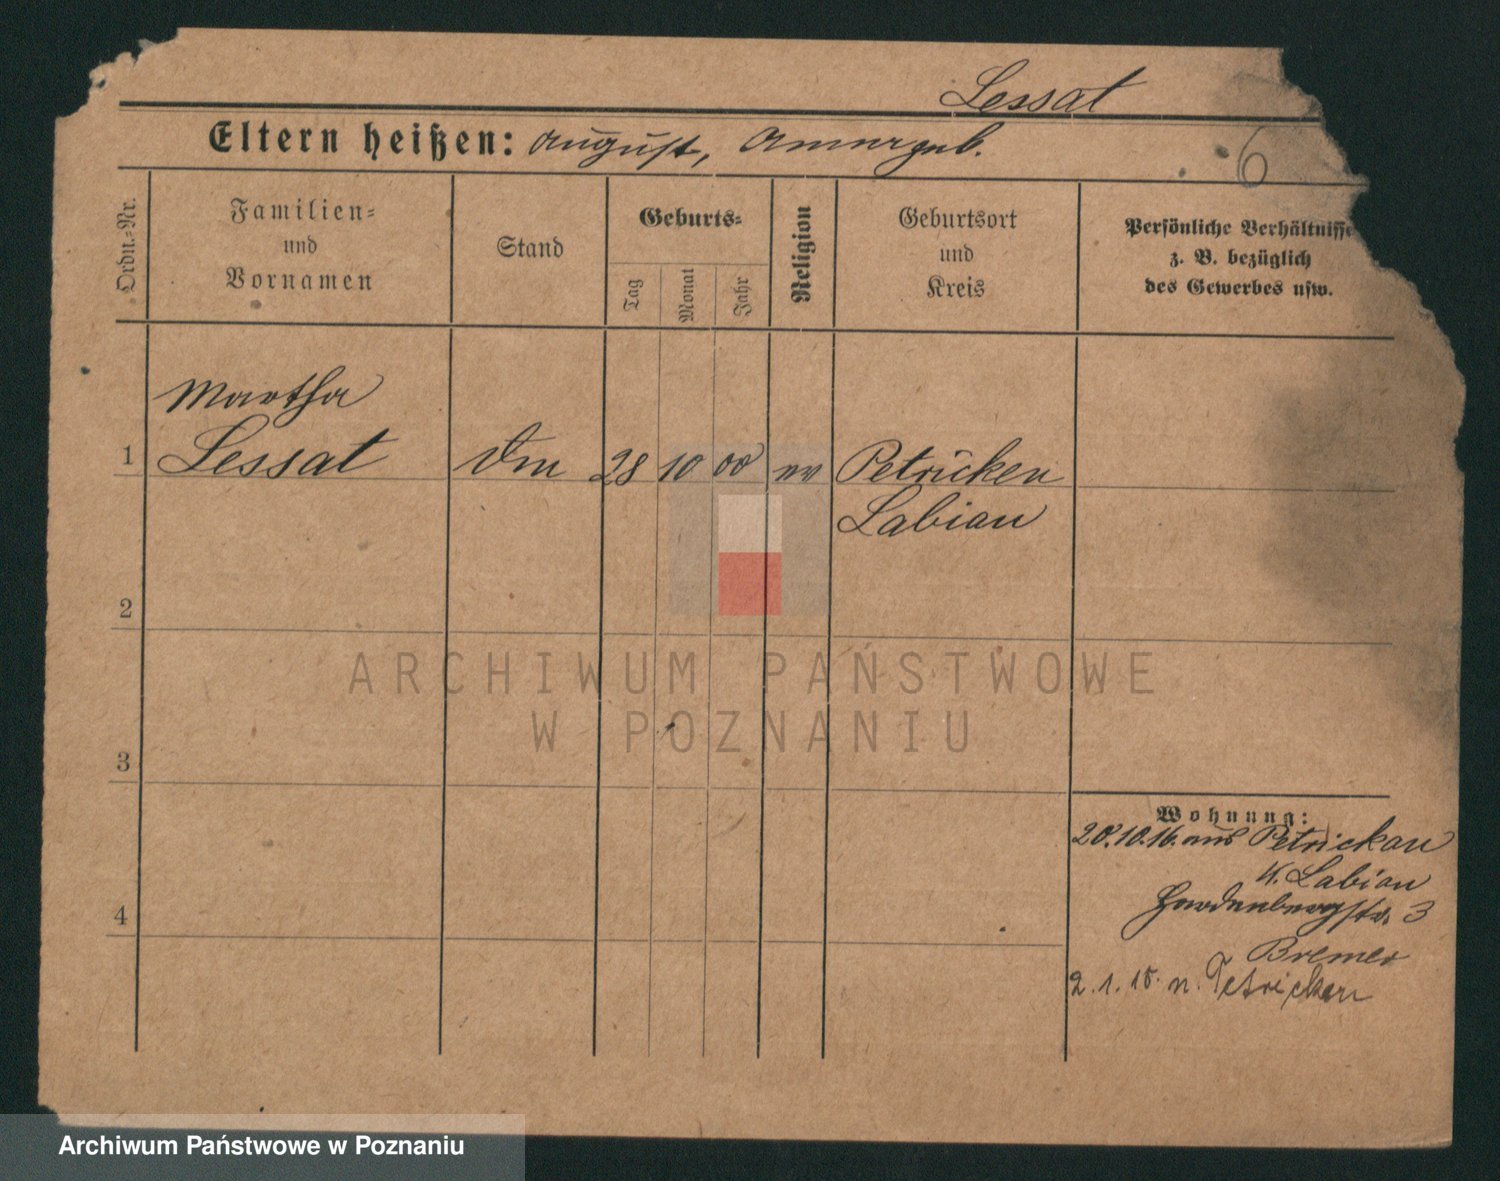 Lessat
Eltern heißen: August,
6
Ordn.=Nr.
Familien=
und
Vornamen
Stand
Geburts=
Tag
Monat
Jahr
Religion
Geburtsort
und
Kreis
Persönliche Verhältnisse
z. B. bezüglich
des Gewerbes usw.
Martha
1 Lessat 28 10 00 ev Petricken
Labiau
2
3
4
Wohnung:
20.10.16. aus Petrickau
K. Labiau
Hardenbergstr. 3
Bremer
2.1.18. n. Petricken
ARCHIWUM PAŃSTWOWE
W POZNANIU
Archiwum Państwowe w Poznaniu